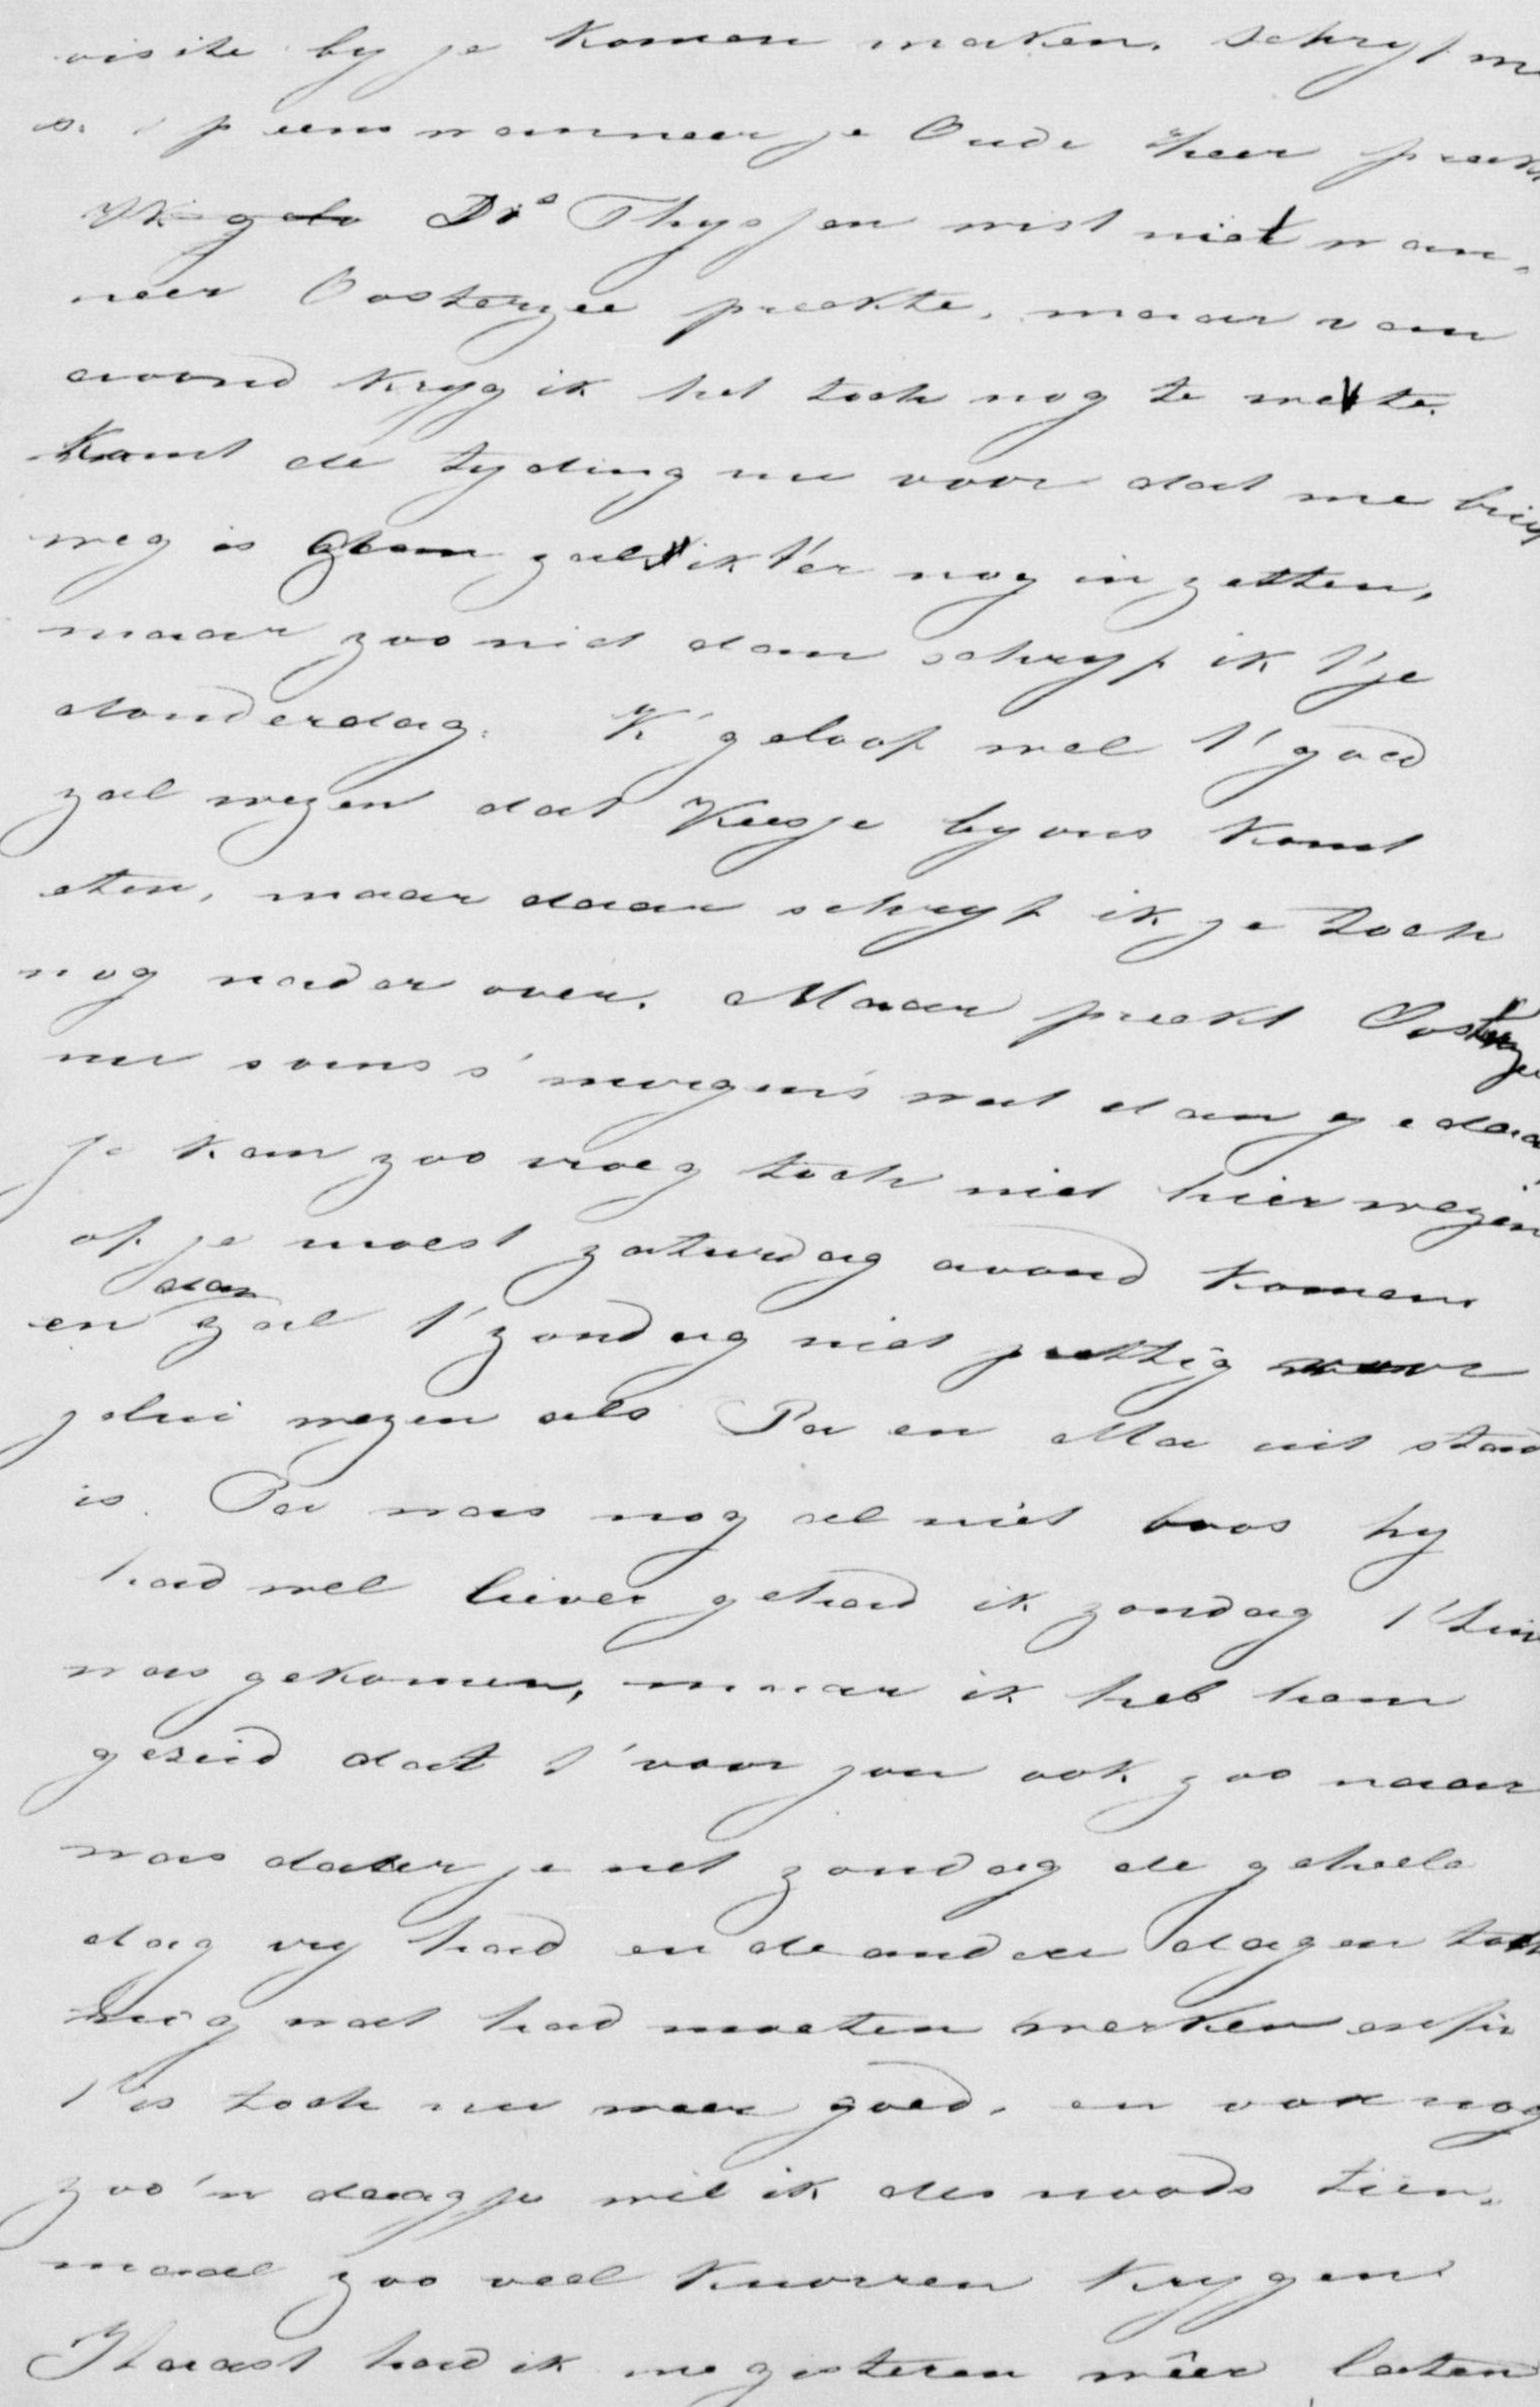 visite by je komen maken. Schryf me
s.v.p eens wanneer je Oude Heer preekt
Ds Thyssen wist niet wan-
neer Oosterzee preekte, maar van
avond kryg ik het toch nog te weten.
Komt de tyding nu voor dat me brief
weg is dan zal ik t'er nog in zetten,
maar zoo niet dan schryf ik t'je
donderdag. K'geloof wel t'goed
zal wezen dat Keesje by ons komt
eten, maar daar schryf ik je toch
nog nader over. Maar preekt Oosterzee
nu soms s'morgens wat dan gedaan
je kan zoo vroeg toch niet hier wezen
of je moest zaturdag avond komen
dan
en zal t'zondag niet prettig voor
jelui wezen als Pa en Ma uit stad
is. Pa was nog al niet boos hy
had wel liever gehad ik zondag t'huis
was gekomen, maar ik heb hem
gezeid dat t'voor jou ook zoo naar
was dat er je net zondag de geheele
dag vry had en de andere dagen toch
nog wat had moeten werken enfin
t'is toch nu weer goed. en voor nog
zoo'n daagje wil ik des noods tien-
maal zoo veel knorren krygen
Haast had ik me gisteren mêer laten